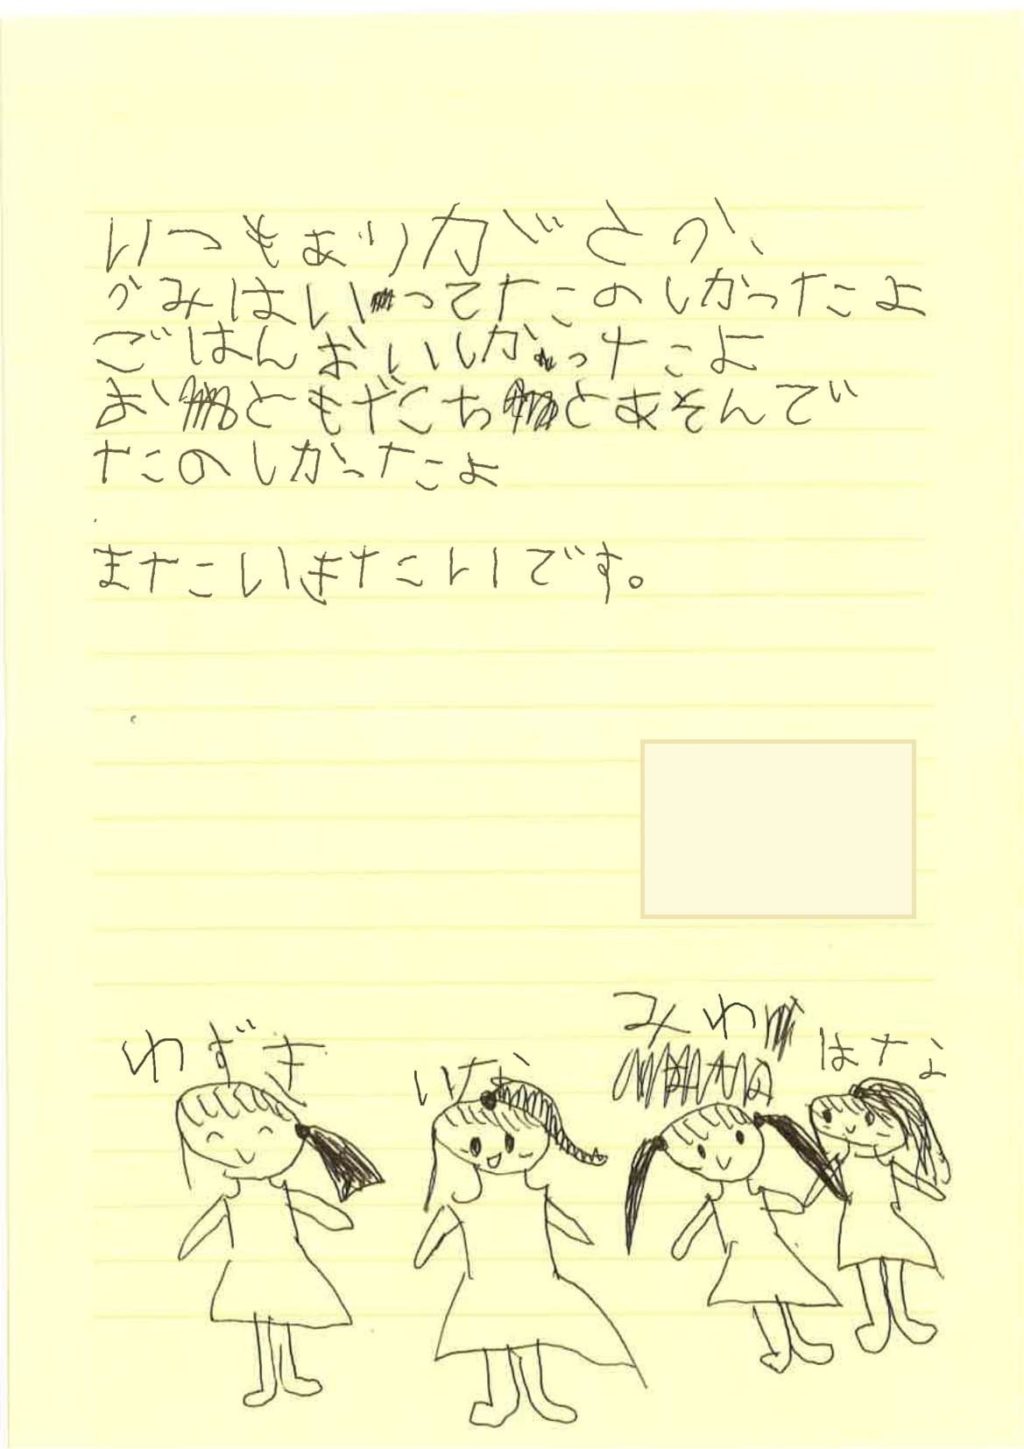 いつもありがとう、
うみはいってたのしかったよ
ごはんおいしかったよ
おともだちとあそんで
たのしかったよ
またいきたいです。
みわ
はな
わずき
いな